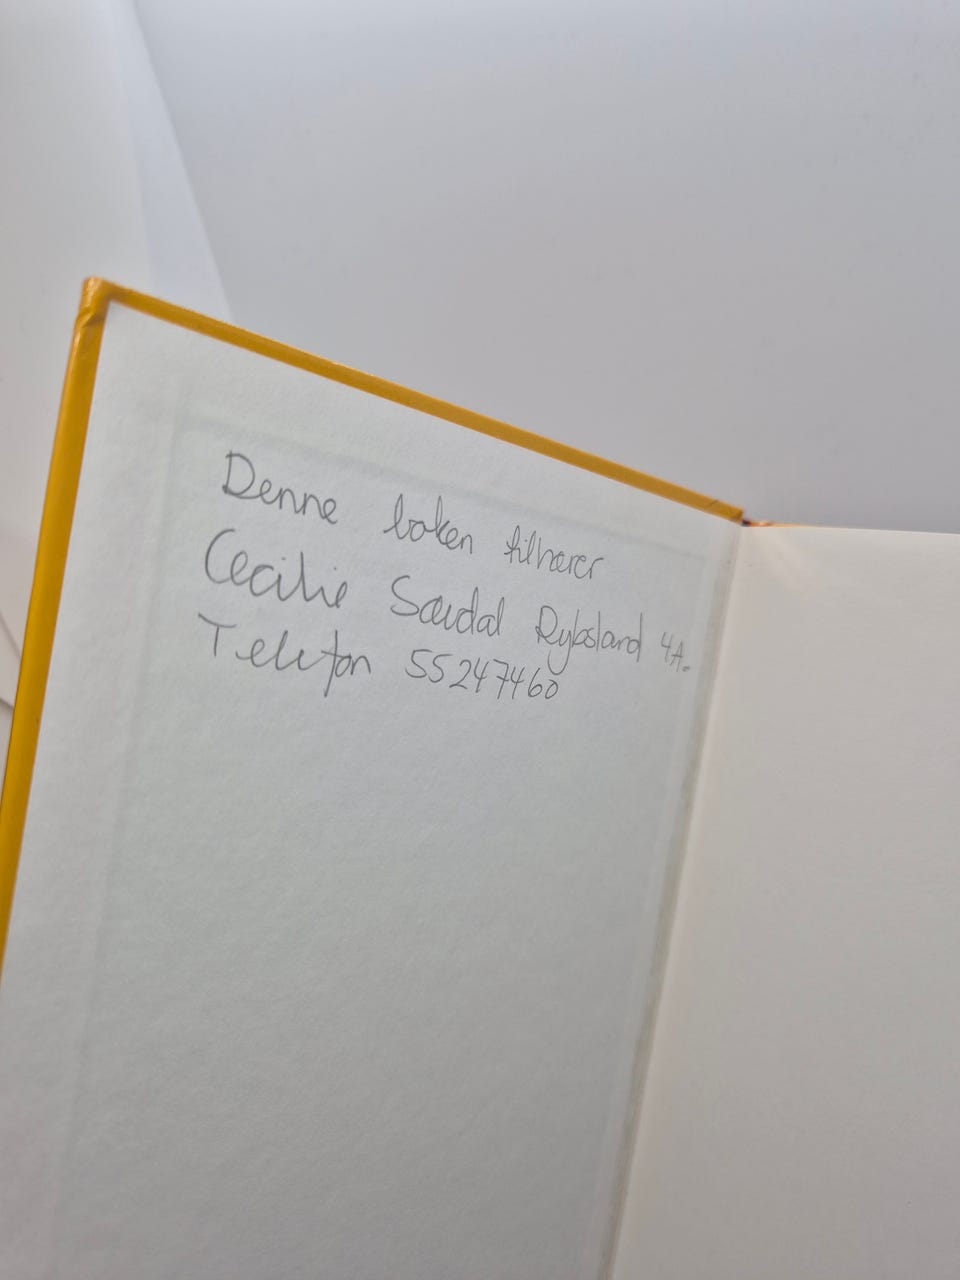 Denne boken tilhører
Cecilie Sædal Rylsland 4A.
Telefon 55247460